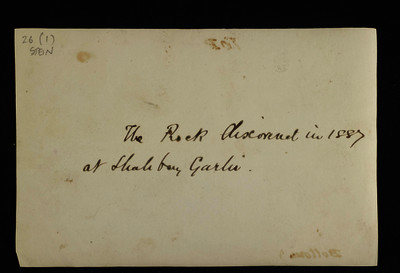 26 (1)
STEIN
The Rock discovered in 1887
at Shahbaz Garhi.